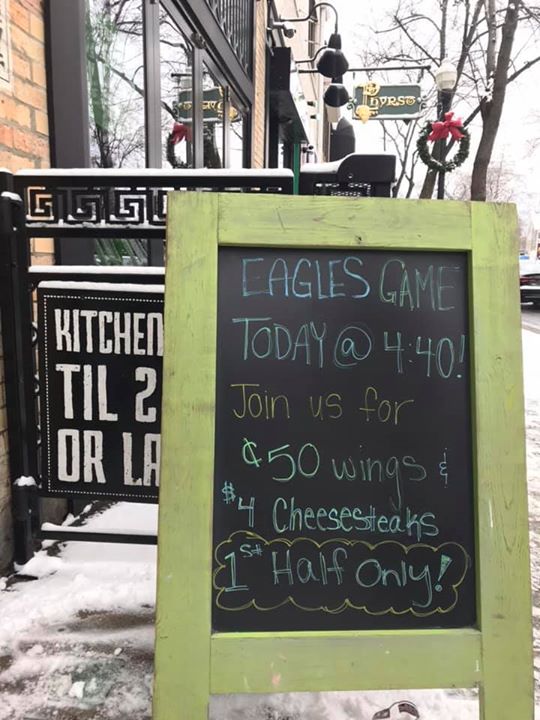 HYRST
EAGLES GAME
TODAY @ 4:40!
Join us for
¢50 wings &
$4 Cheesesteaks
1st Half Only!
KITCHEN
TIL 2
OR LA